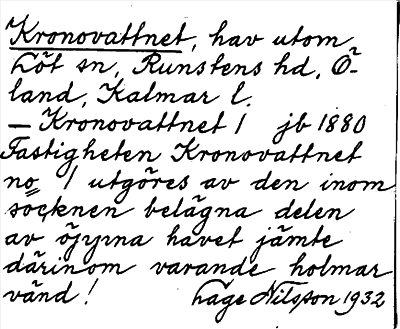 Kronovattnet, hav utom
Löt sn, Runstens hd, Ö-
land, Kalmar l.
— Kronovattnet 1 jb 1880
Fastigheten Kronovattnet
no 1 utgöres av den inom
socknen belägna delen
av öppna havet jämte
därinom varande holmar
vänd! Låge Nilsson 1932